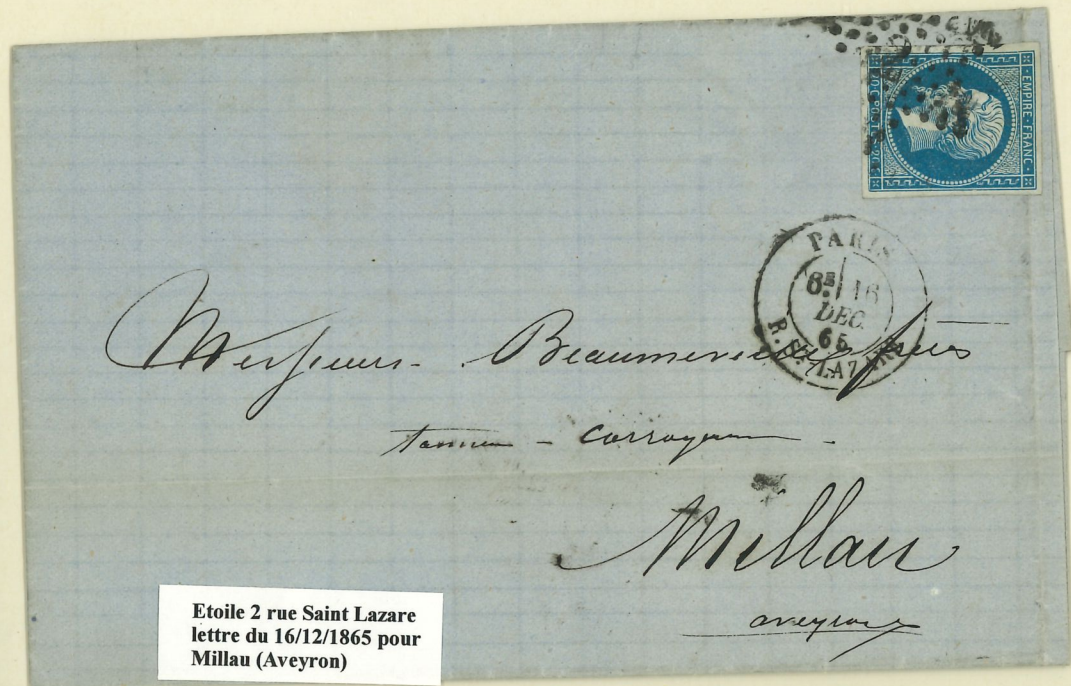 EMPIRE FRANC.
20 C POSTES 20 C
PARIS
6E 16
DEC.
65
R. ST. LAZARE
Messieurs frères
tanneurs - Corroyeurs -
Millau
aveyron
Etoile 2 rue Saint Lazare
lettre du 16/12/1865 pour
Millau (Aveyron)